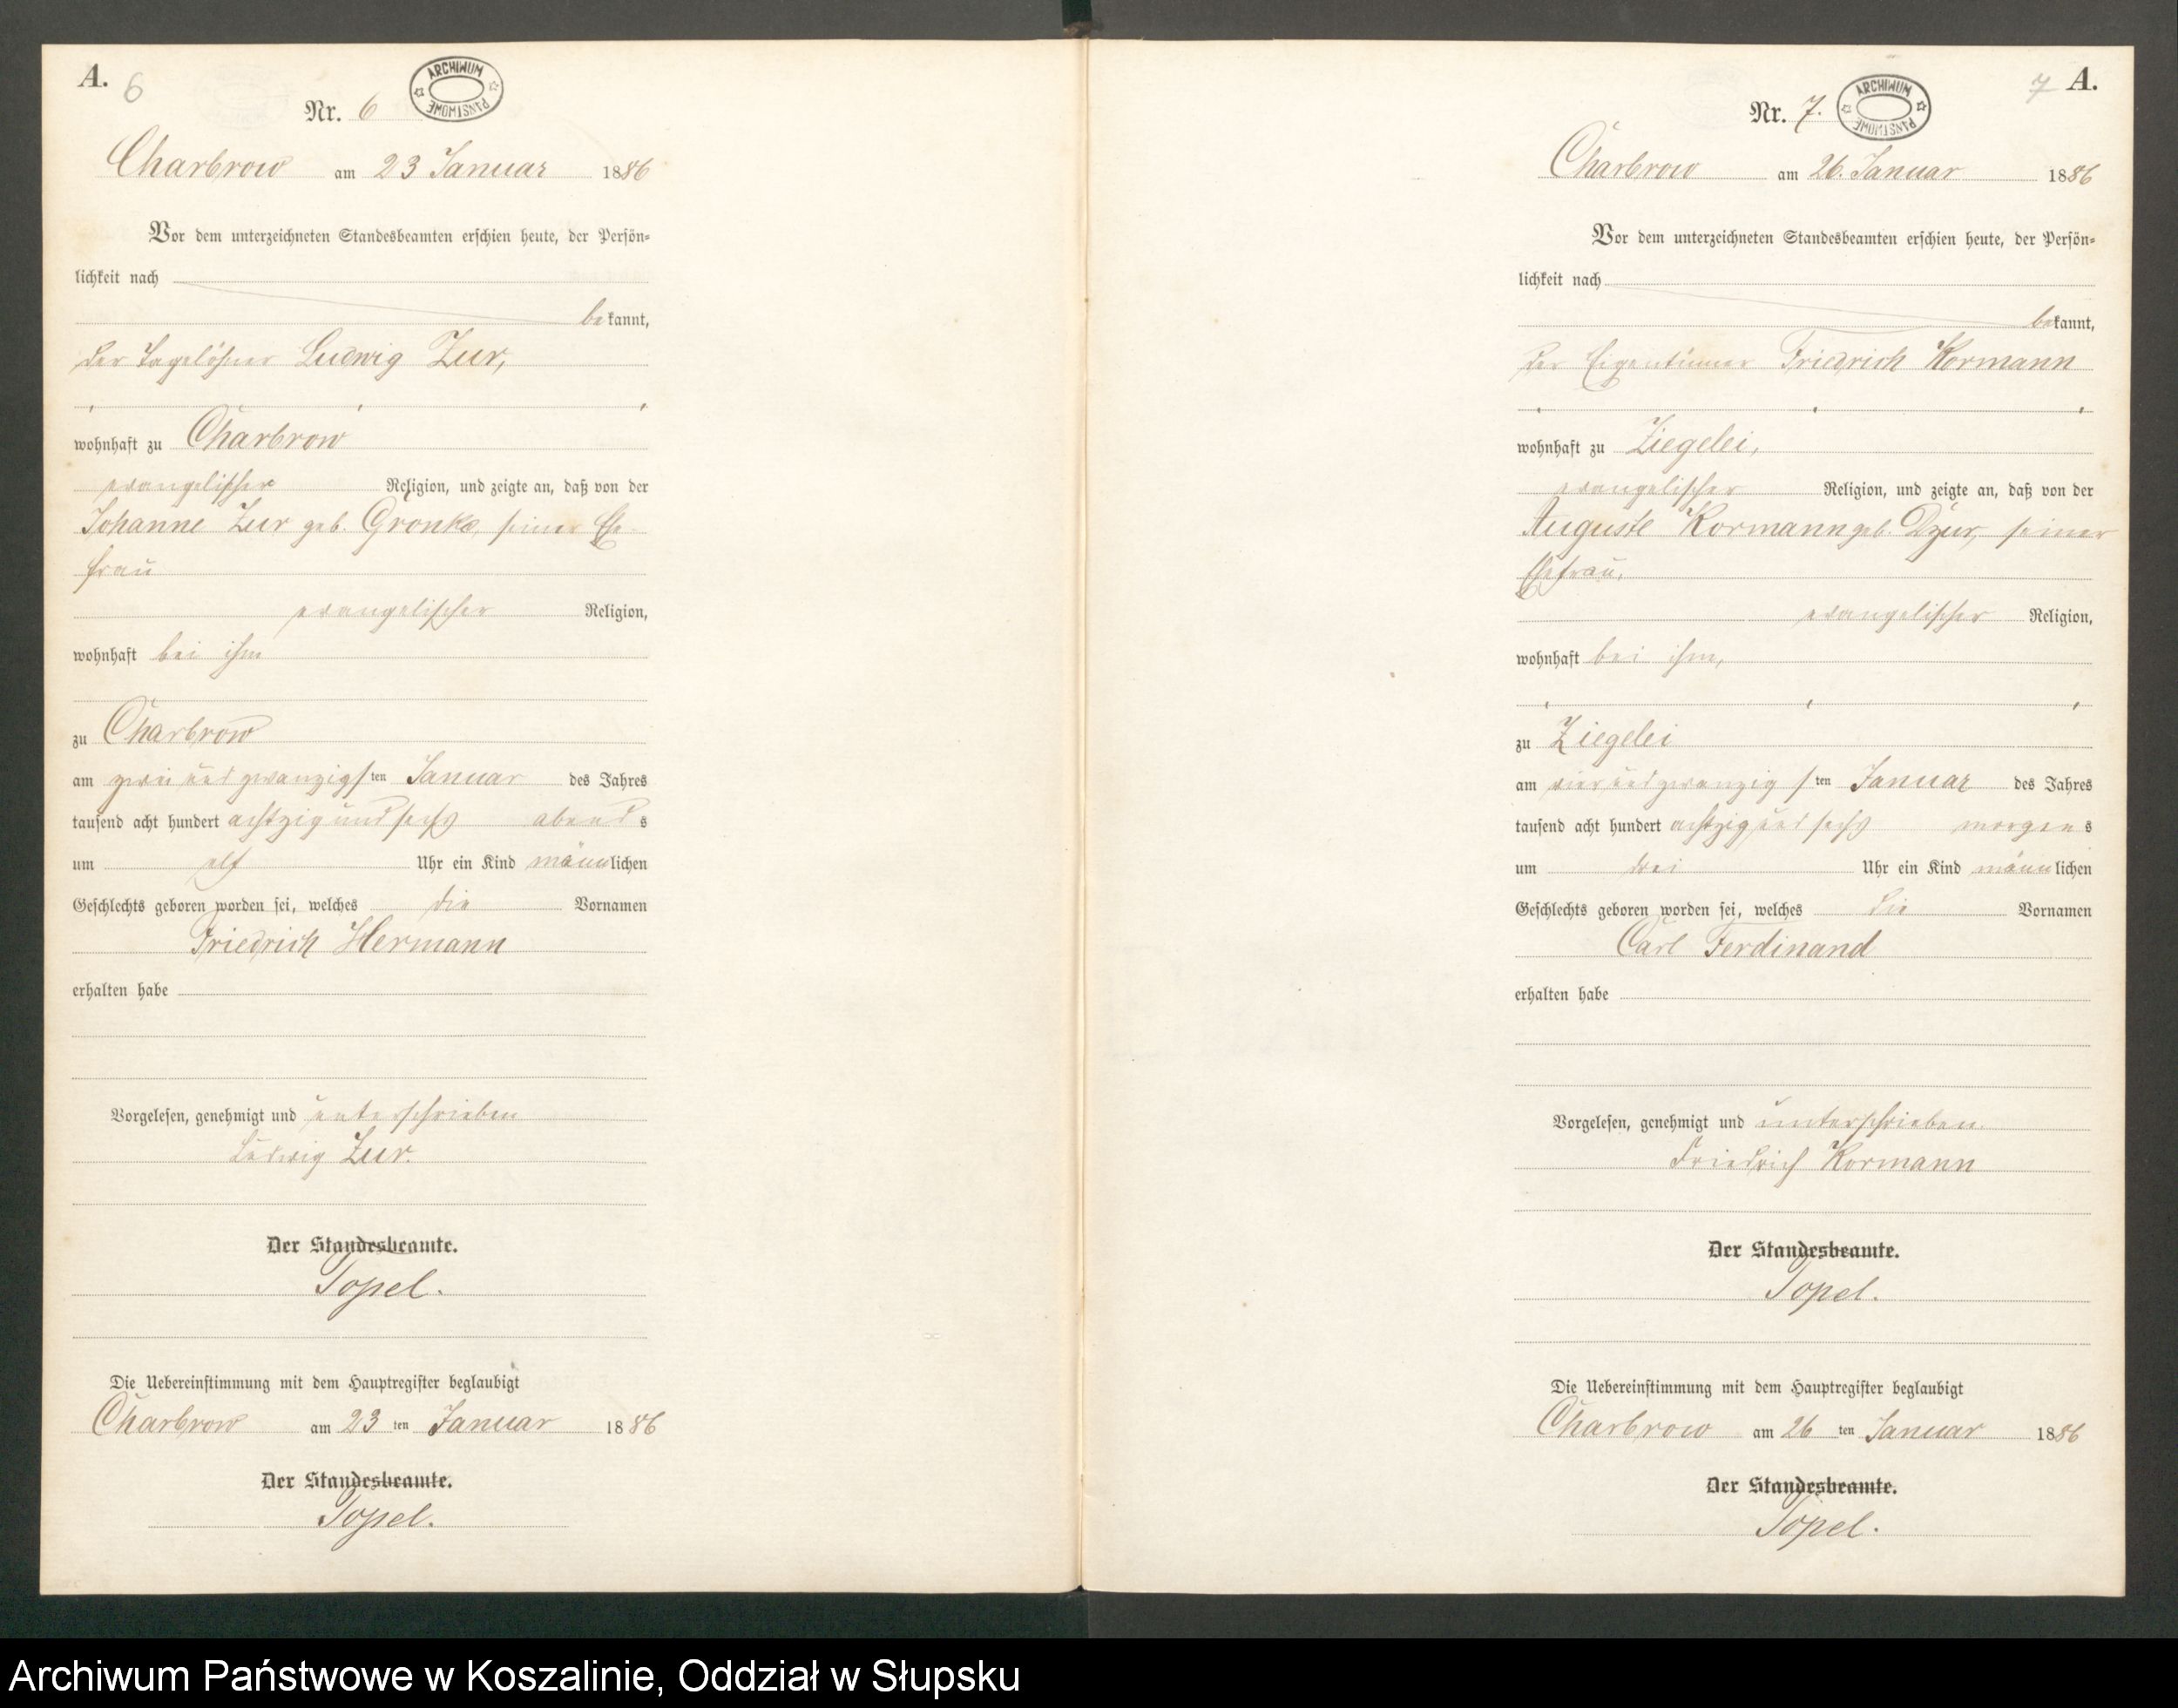 A. 6
Nr. 6
ARCHIWUM PAŃSTWOWE
Charbrow am 23 Januar 1886
Vor dem unterzeichneten Standesbeamten erschien heute, der Persön-
lichkeit nach
bekannt,
der Tagelöhner Ludwig Zur,
wohnhaft zu Charbrow
evangelischer Religion, und zeigte an, daß von der
Johanne Zur geb. Gronke, seiner Ehe-
frau
evangelischer Religion,
wohnhaft bei ihm
zu Charbrow
am zwei und zwanzigsten Januar des Jahres
tausend acht hundert achtzig und sechs abends
um elf Uhr ein Kind männlichen
Geschlechts geboren worden sei, welches die Vornamen
Friedrich Hermann
erhalten habe
Vorgelesen, genehmigt und unterschrieben
Ludwig Zur.
Der Standesbeamte.
Topel.
Die Uebereinstimmung mit dem Hauptregister beglaubigt
Charbrow am 23 ten Januar 1886
Der Standesbeamte.
Topel.
7 A.
Nr. 7.
ARCHIWUM PAŃSTWOWE
Charbrow am 26. Januar 1886
Vor dem unterzeichneten Standesbeamten erschien heute, der Persön-
lichkeit nach
bekannt,
der Eigentümer Friedrich Kormann
wohnhaft zu Ziegelei,
evangelischer Religion, und zeigte an, daß von der
Auguste Kormann geb. Dzur, seiner
Ehefrau,
evangelischer Religion,
wohnhaft bei ihm,
zu Ziegelei
am vier und zwanzigsten Januar des Jahres
tausend acht hundert achtzig und sechs morgens
um drei Uhr ein Kind männlichen
Geschlechts geboren worden sei, welches die Vornamen
Carl Ferdinand
erhalten habe
Vorgelesen, genehmigt und unterschrieben.
Friedrich Kormann
Der Standesbeamte.
Topel.
Die Uebereinstimmung mit dem Hauptregister beglaubigt
Charbrow am 26 ten Januar 1886
Der Standesbeamte.
Topel.
Archiwum Państwowe w Koszalinie, Oddział w Słupsku